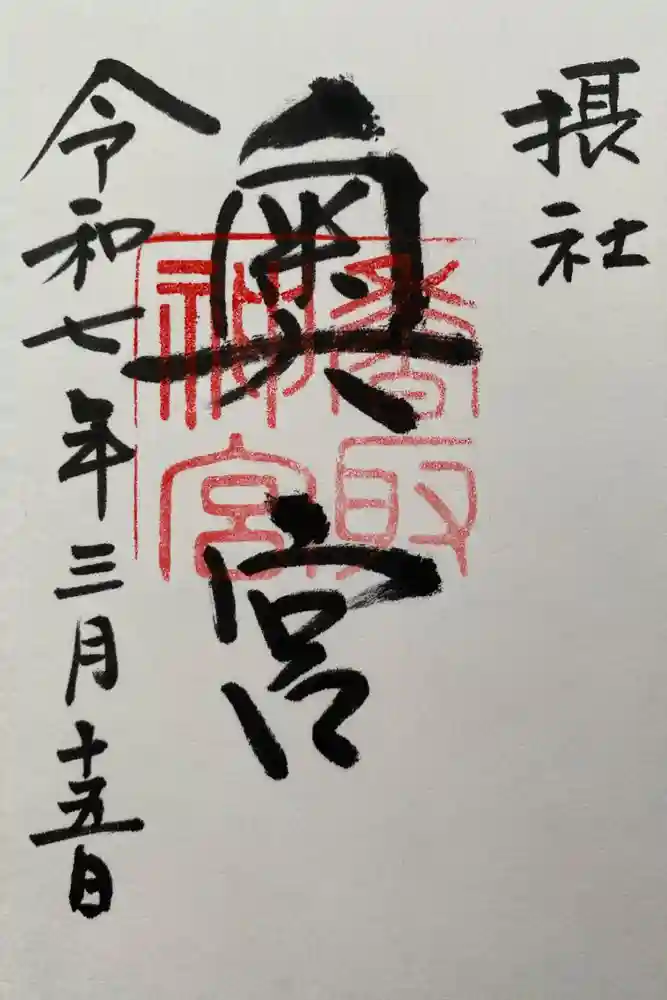 摂社
奥宮
香取
神宮
令和七年三月十五日